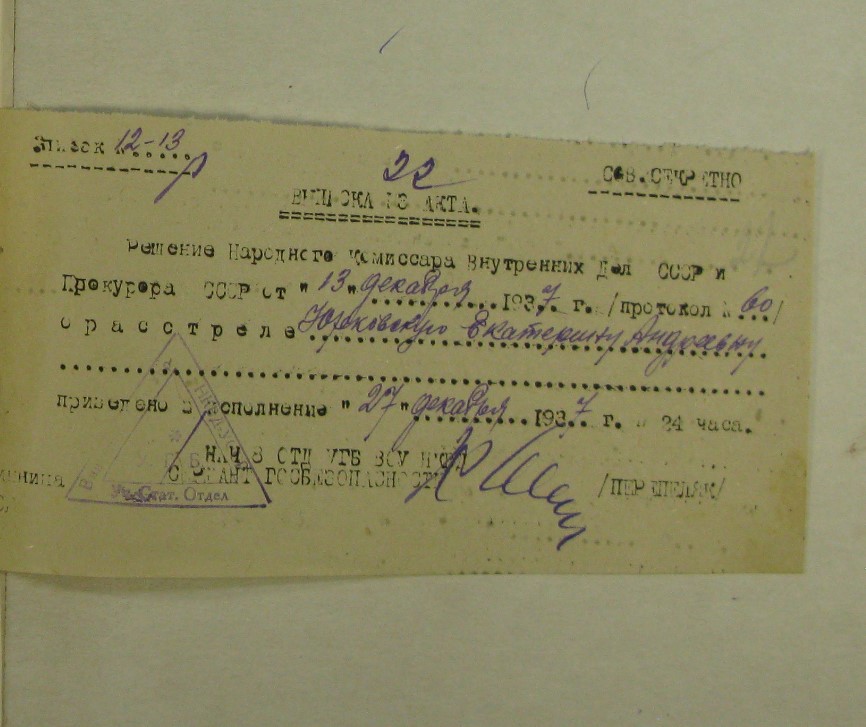 Список № 12-13
22
СОВ.СЕКРЕТНО
ВЫПИСКА ИЗ АКТА.
Решение Народного Комиссара Внутренних Дел СССР и
Прокурора СССР от "13" декабря 1937 г. /протокол № 60/
о расстреле Юрковскую Екатерину Андреевну
приведено в исполнение "27" декабря 1937 г. в 24 часа.
НАЧ 8 ОТД УГБ ВОУ НКВД
СЕРЖАНТ ГОСБЕЗОПАСНОСТИ /ПЕРЕПЕЛЯК/
Стат. Отдел